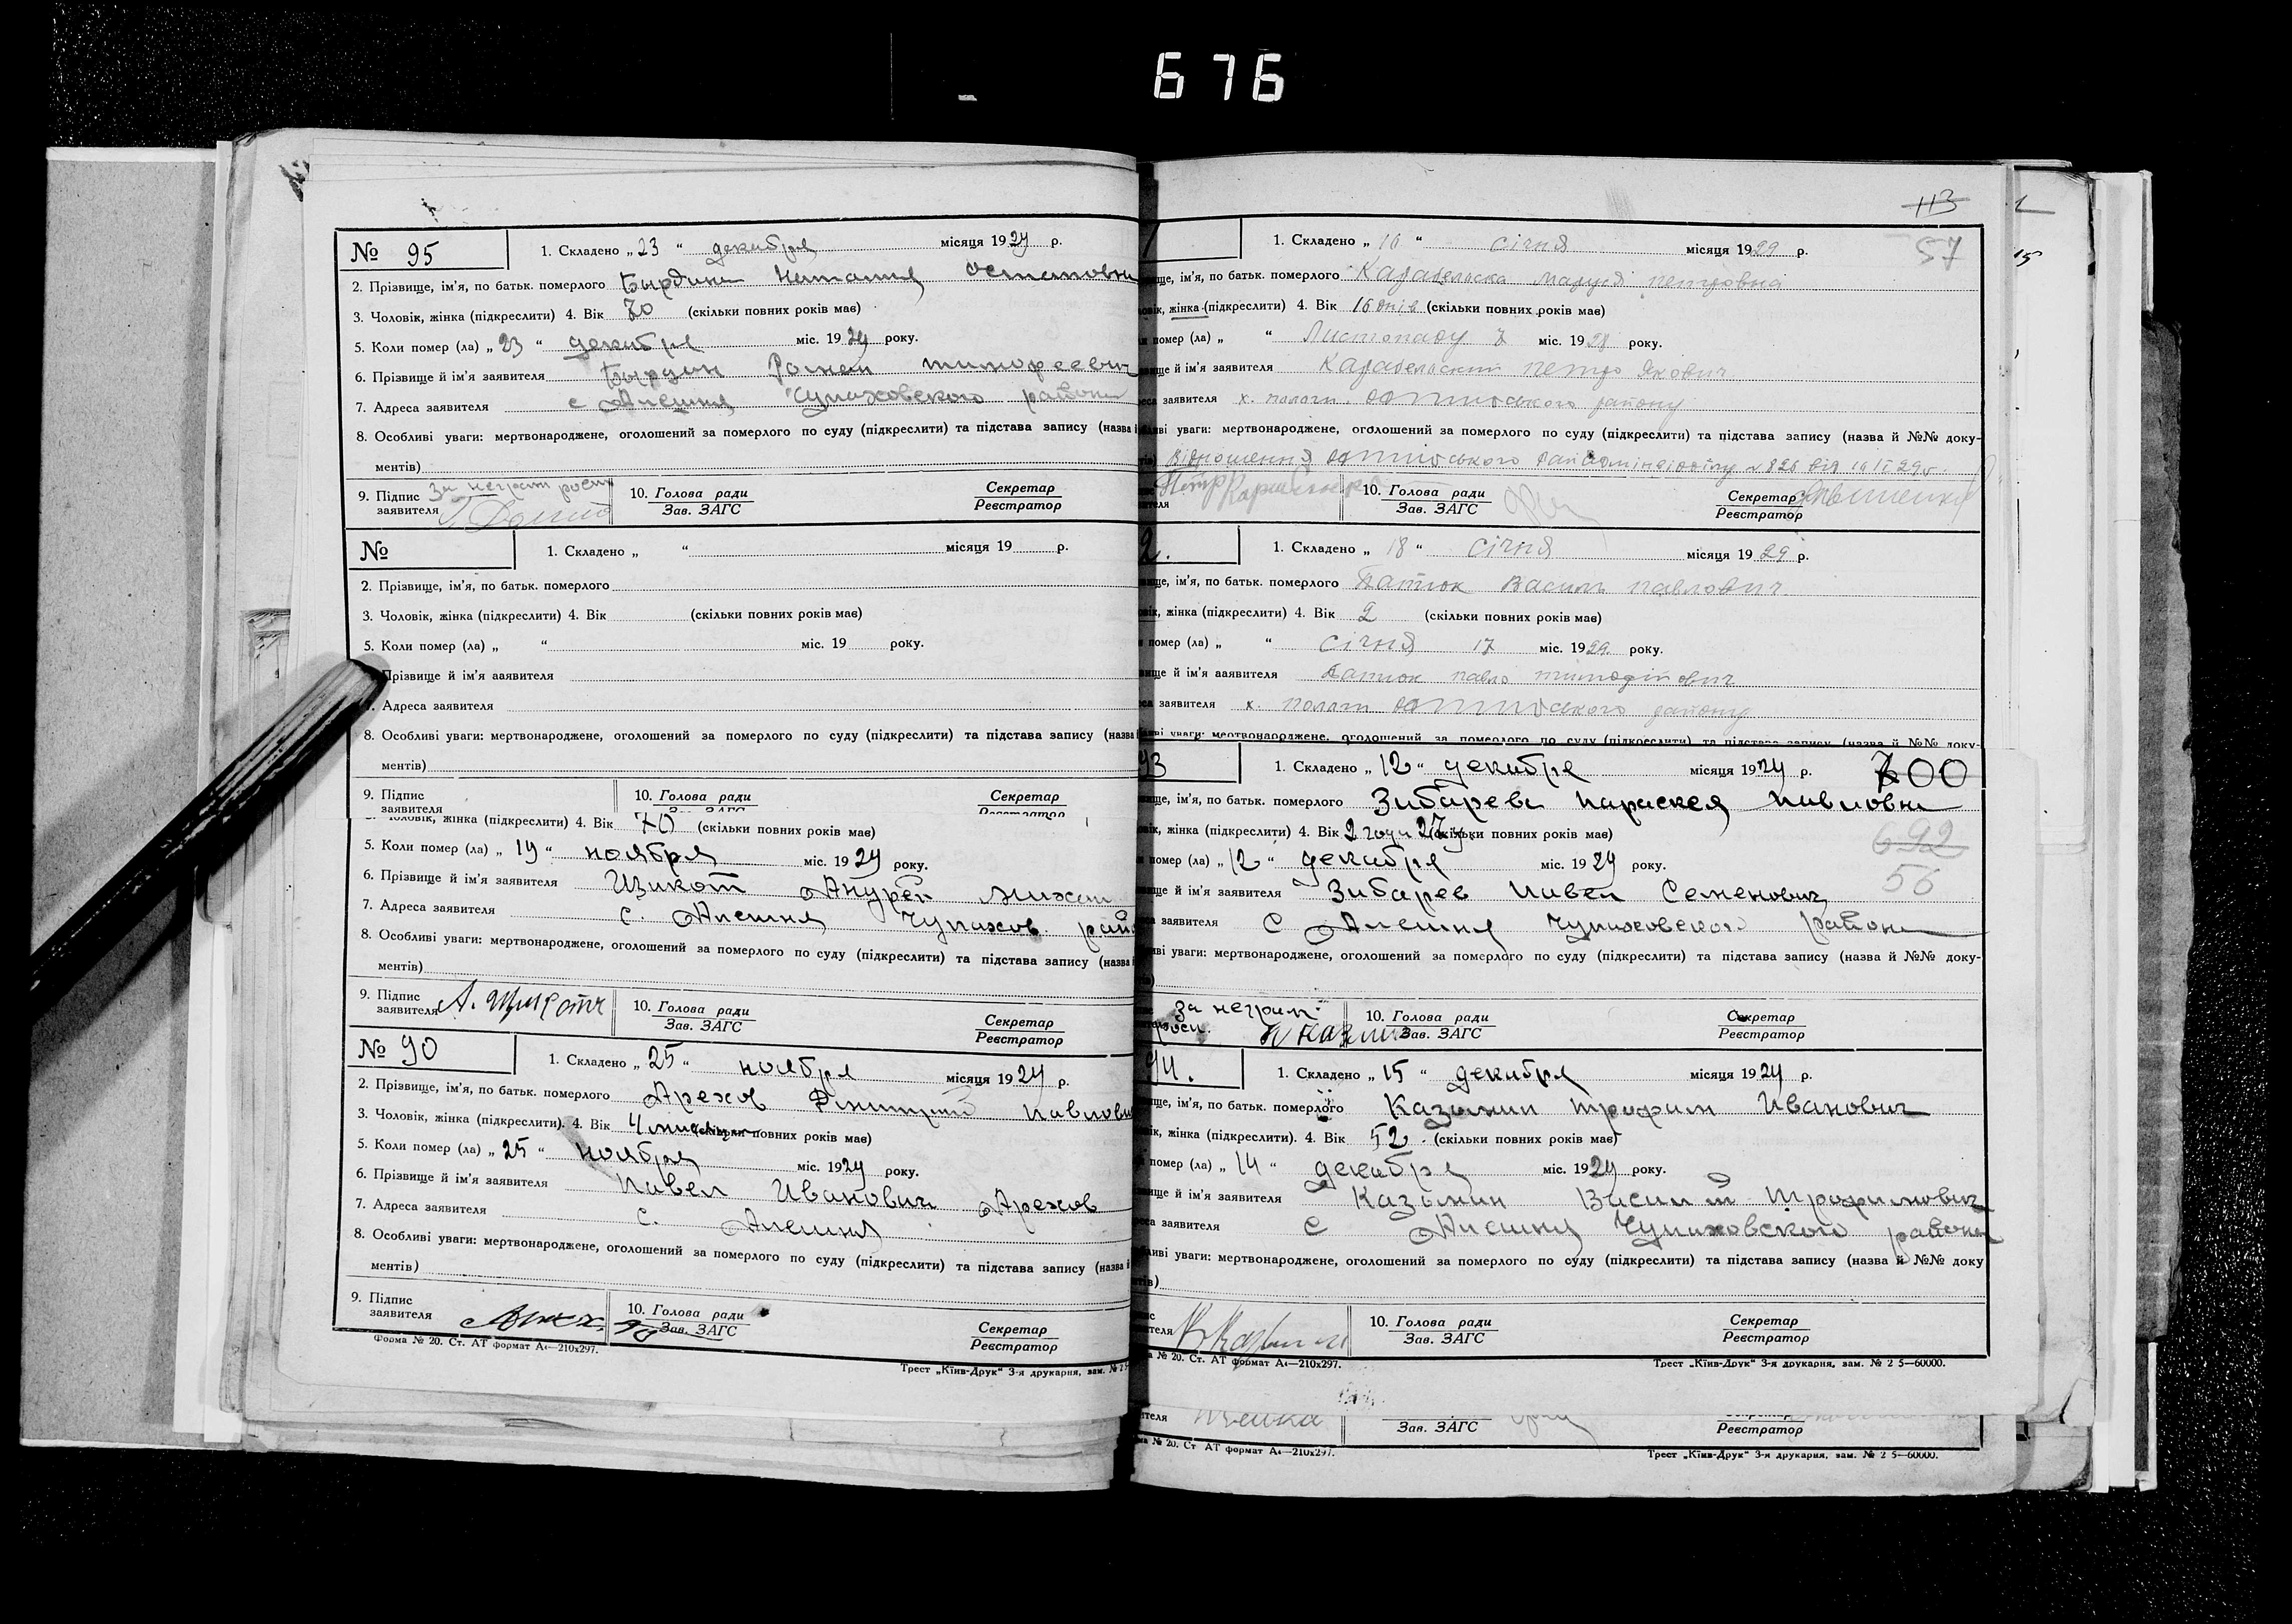 676
№ 95
1. Складено „ 23 “ декабря місяця 1929 р.
2. Прізвище, ім'я, по батьк. померлого Бырдин Наталия Остаповна
3. Чоловік, жінка (підкреслити) 4. Вік 70 (скільки повних років має)
5. Коли помер (ла) „ 23 “ декабря міс. 1929 року.
6. Прізвище й ім'я заявителя Бырдин Роман Тимофеевич
7. Адреса заявителя с Алешня Чупаховского района
8. Особливі уваги: мертвонароджене, оголошений за померлого по суду (підкреслити) та підстава запису (назва
ментів)
9. Підпис заявителя за неграм росп
10. Голова ради
Зав. ЗАГС
Секретар
Реєстратор
№
1. Складено „ “ місяця 19 р.
2. Прізвище, ім'я, по батьк. померлого
3. Чоловік, жінка (підкреслити) 4. Вік (скільки повних років має)
5. Коли помер (ла) „ “ міс. 19 року.
Прізвище й ім'я заявителя
Адреса заявителя
8. Особливі уваги: мертвонароджене, оголошений за померлого по суду (підкреслити) та підстава запису (назва
ментів)
9. Підпис
заявителя
10. Голова ради
Секретар
чоловік, жінка (підкреслити) 4. Вік 70 (скільки повних років має)
5. Коли помер (ла) „ 19 “ ноября міс. 1929 року.
6. Прізвище й ім'я заявителя Цикот Андрей Михаи
7. Адреса заявителя с. Алешня Чупахов. рай
8. Особливі уваги: мертвонароджене, оголошений за померлого по суду (підкреслити) та підстава запису (назва
ментів)
9. Підпис
заявителя
10. Голова ради
Зав. ЗАГС
Секретар
Реєстратор
№ 90
1. Складено „ 25 “ ноября місяця 1929 р.
2. Прізвище, ім'я, по батьк. померлого Арехов Дмитрий Павлови
3. Чоловік, жінка (підкреслити). 4. Вік 4 месяца (скільки повних років має)
5. Коли помер (ла) „ 25 “ ноября міс. 1929 року.
6. Прізвище й ім'я заявителя Павел Иванович Арехов
7. Адреса заявителя с. Алешня
8. Особливі уваги: мертвонароджене, оголошений за померлого по суду (підкреслити) та підстава запису (назва
ментів)
9. Підпис
заявителя
10. Голова ради
Зав. ЗАГС
Секретар
Реєстратор
Форма № 20. Ст. АТ формат А4—210х297.
Трест „Київ-Друк“ 3-я друкарня, зам. №
113
57
1. Складено „ 16 “ січня місяця 1929 р.
ще, ім'я, по батьк. померлого Карабельска Мария Петровна
жінка (підкреслити) 4. Вік 16 днів (скільки повних років має)
помер (ла) „ “ Листопаду 7 міс. 1928 року.
ще й ім'я заявителя Карабельский Петро Якович
заявителя х. Пологи Охтирського району
уваги: мертвонароджене, оголошений за померлого по суду (підкреслити) та підстава запису (назва й №№ доку-
Відношення Охтирського Райадмінвідділу № 826
10. Голова ради
Зав. ЗАГС
Секретар
Реєстратор
2.
1. Складено „ 18 “ січня місяця 1929 р.
ще, ім'я, по батьк. померлого Патюк Василь Павлович
жінка (підкреслити) 4. Вік 2 (скільки повних років має)
помер (ла) „ “ січня 17 міс. 1929. року.
ще й ім'я заявителя Патюк Павло Тимофійович
заявителя х. Пологи Охтирського району
уваги: мертвонароджене, оголошений за померлого по суду (підкреслити) та підстава запису (назва й №№ доку-
93
1. Складено „ 12 “ декабря місяця 1929 р. 700
ще, ім'я, по батьк. померлого Зибарева Параскея Павловна
жінка (підкреслити) 4. Вік 2 года (скільки повних років має)
692
помер (ла) „ 12 “ декабря міс. 1929 року.
56
ще й ім'я заявителя Зибарев Павел Семенович
заявителя С Алешня Чупаховского района
уваги: мертвонароджене, оголошений за померлого по суду (підкреслити) та підстава запису (назва й №№ доку-
за неграм.
росп.
10. Голова ради
Зав. ЗАГС
Секретар
Реєстратор
94.
1. Складено „ 15 “ декабря місяця 1929 р.
ще, ім'я, по батьк. померлого Казьмин Трофим Иванович
жінка (підкреслити). 4. Вік 52. (скільки повних років має)
помер (ла) „ 14 “ декабря міс. 1929 року.
ще й ім'я заявителя Казьмин Василий Трофимович
заявителя С Алешня Чупаховского района
уваги: мертвонароджене, оголошений за померлого по суду (підкреслити) та підстава запису (назва й №№ доку
10. Голова ради
Зав. ЗАГС
Секретар
Реєстратор
№ 20. Ст. АТ формат А4—210х297.
Трест „Київ-Друк“ 3-я друкарня, зам. № 2 5—60000.
Зав. ЗАГС
Реєстратор
№ 20. Ст АТ формат А4—210х297.
Трест „Київ-Друк“ 3-я друкарня, зам. № 2 5—60000.